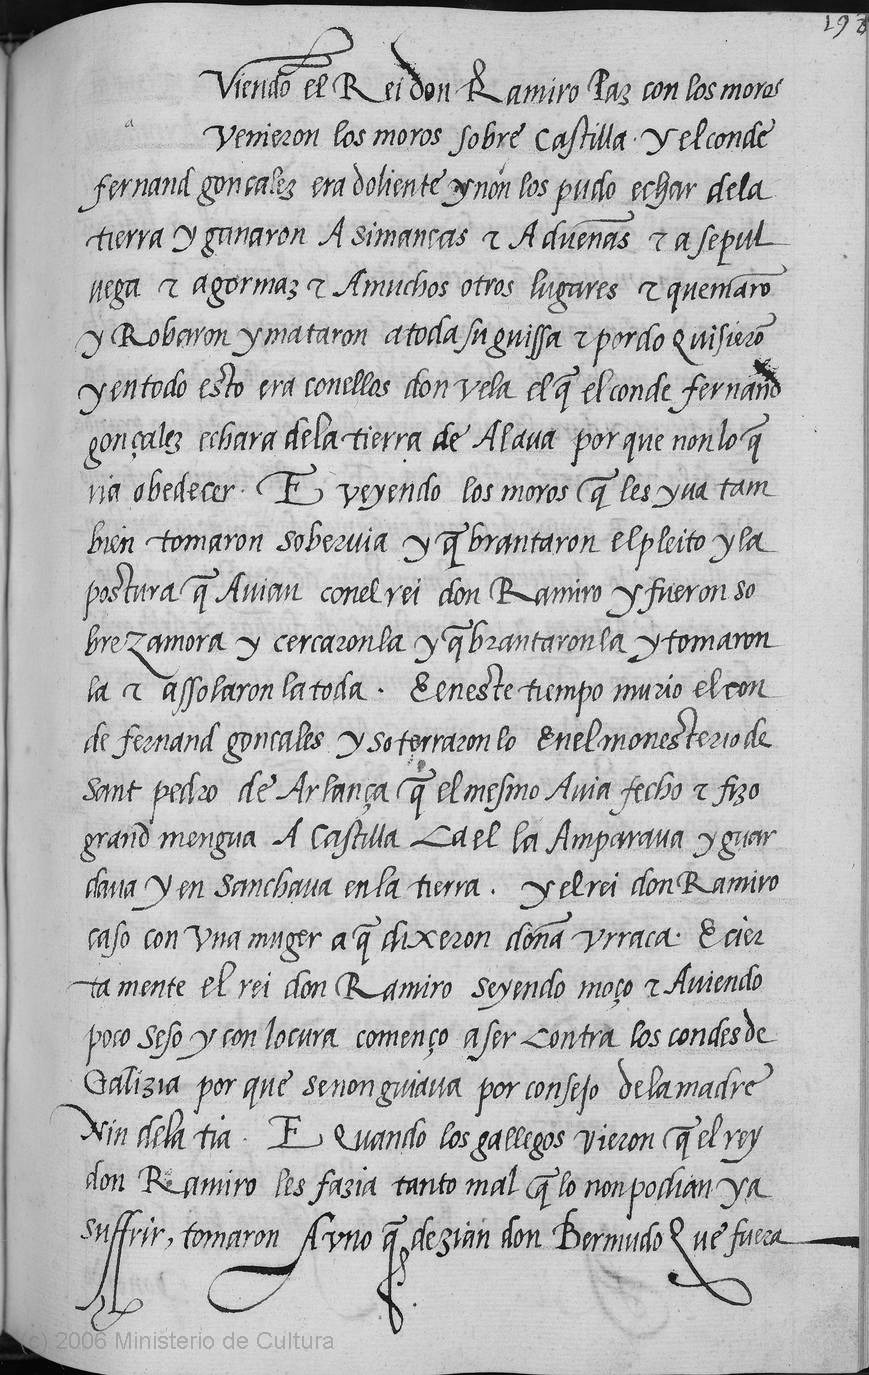 193
Viendo el Rei don Ramiro Paz con los moros
Venieron los moros sobre Castilla. y el conde
fernand gonçalez era doliente y non los pudo echar dela
tierra y ganaron A simancas τ A dueñas τ a sepul
uega τ agormaz τ Amuchos otros lugares τ quemarõ
y Robaron y mataron atoda su guissa τ pordo Quisierõ
y en todo esto era conellos don vela el q̃ el conde fernand
gonçalez echara dela tierra de Alaua por que non lo q̃
ria obedecer. E veyendo los moros q̃ les yua tam
bien tomaron soberuia y q̃brantaron el pleito y la
postura q̃ Auian conel rei don Ramiro y fueron so
bre Zamora y cercaronla y q̃brantaronla y tomaron
la τ assolaron la toda. E eneste tiempo murio el con
de fernand gonçales y soterraron lo Enel monesterio de
Sant pedro de Arlança q̃ el mesmo Auia fecho τ fizo
grand mengua A Castilla Ca el la Amparaua y guar
daua y en Sanchaua en la tierra. y el rei don Ramiro
caso con Vna muger a q̃ dixeron doña vrraca. E cier
ta mente el rei don Ramiro seyendo moço τ Auiendo
poco seso y con locura començo a ser Contra los condes de
Galizia por que se non guiaua por consejo dela madre
Nin dela tia. E Quando los gallegos vieron q̃ el rey
don Ramiro les fazia tanto mal q̃ lo non podian ya
suffrir, tomaron A vno q̃ dezian don Bermudo Que fuera
(c) 2006 Ministerio de Cultura